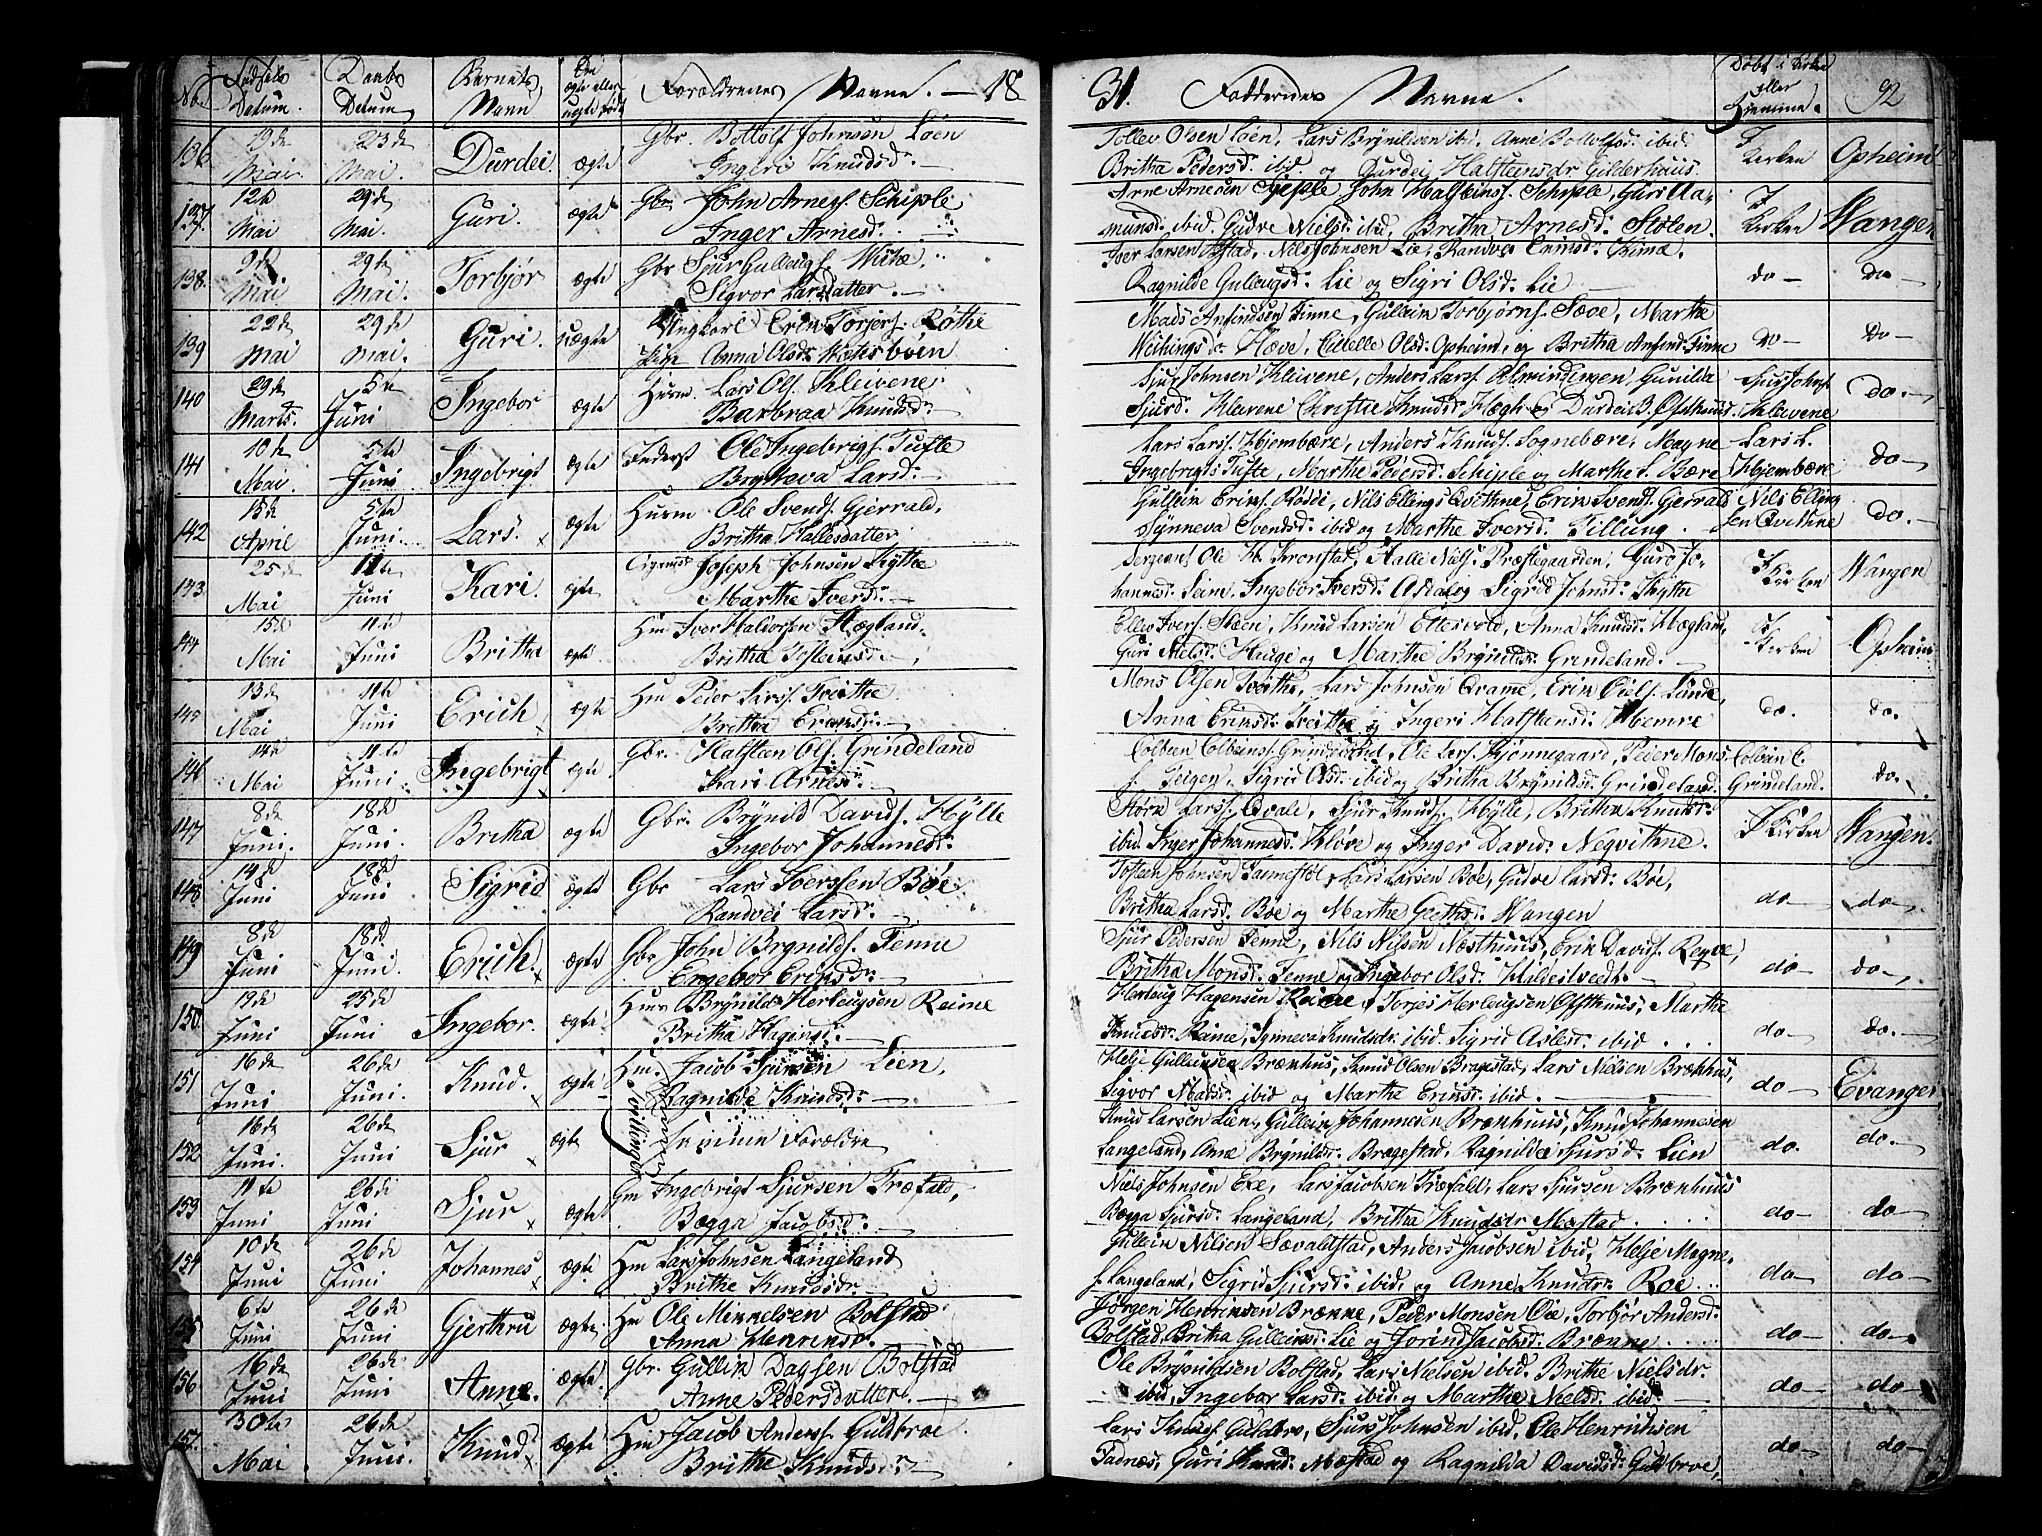 No. Fødsels Datum. Daabs Datum Barnets Navn Om ægte eller uægte født Forældrenes Navne. — 18
31. Faddernes Navne. Døbt i Kirke eller Hiemme. 92
136 19de Mai. 23de Mai. Durdei ægte Gbr. Bottolf Johnsen Löen
Ingeri Knudsd:
Tollev Olsen Löen, Lars Brynildsen ibi. Anne Bottolfsd: ibid.
Britha Pedersd: ibid. og Durdei Halsteensdr Gilderhuus. I Kirken Opheim
137. 12te Mai 29de Mai. Guri. ægte Gbr John Arnes. Schiple
Inger Arnesd:
Arne Arnesen Schiple John Halsteins. Schiple, Guri Aa-
mundsd: ibid. Gudve Nielsd: ibid, Britha Arnesd: Stölen. I Kirken Wangen
138. 9de Mai 29de Mai. Torbjör ægte Gbr Sjur Gulleiks.
Sigvor Larsdatter.
Iver Larsen, Nils Johnsen Lie, Randve
Ragnilde Gulleugsd: Lie og Sigri Olsd: Lie do — do
139 22de Mai 29de Mai. Guri. uægte Ungkarl Erik Torjers. Röthe
Pige Anna Olsd:
Mads Anfindsen Finne, Gullein Torbjörns. Sæve, Marthe
Sæve, Cicelle Olsd: Opheim, og Britha Anfind: Finne do — do —
140 29de Marts. 5te Juni Ingebor ægte Husm. Lars Ols. Kleivene
Barbraa Knudsd:
Sjur Johnsen Kleivene, Anders Lars. Almindingen, Gunilda
Sjursd: Kleivene Christie Knudsd: Hægh og Durdei B. Östhuus. Sjur Johns. Kleivene do. —
141 10de Mai. 5te Juni Ingebrigt ægte Inderst Ole Ingebrigs. Tufte
Brytteva Larsd:
Lars Lars. Hjembære, Anders Knuds. Sognebære, Magne
Ingebrigts Tufte, Marthe Pedersd: Schiple og Marthe S. Bære Lars L. Hjembære do —
142 15de April 5te Juni. Lars. ægte Husm Ole Svends. Gjerrald,
Britha Hallesdatter
Gullein Eriks. Rödde, Nils Ellings Qvithne, Erik Svends. Gjerrald
Synneva Svendsd: ibid og Marthe Iversd: Gillung. Nils Elling sen Qvithne do. —
143 25de Mai 11te Juni Kari. ægte Joseph Johnsen Skytte
Marthe Iversd:
Sergeant Ole H. Kronstad, Halle Niels. Præstegaarden, Guro Jo-
hannesd: Seim, Ingebor Iversd: og Sigrid Johnsd: Skytte I Kirken Wangen
144 15de Mai 11te Juni Britha ægte Hm Iver Haldorsen Hægland.
Britha
Ellev Ivers. Steen, Knud Larsen Ettervold, Anna Knudsd: Hægland,
Guri Nielsd: Hauge og Marthe Brynildsd: Grindeland. — I Kirken Opheim
145 13de Mai 11te Juni Erich ægte Hm Peder Lars. Tveithe
Britha Eriksd:
Mons Olsen Tveithe, Lars Johnsen Qvamme, Erik Lunde,
Anna Eriksd: Tveithe og Ingeri Halsteensd: do. do.
146 14de Mai 11te Juni Ingebrigt ægte Gbr. Halsteen Ols. Grindeland
Kari Arnesd:
Colbein Colbeins. Grindeland, Ole Lars. Skjönnegaard, Peder Mons
s. Teigen, Sigrid Olsd: ibid og Britha Brynildsd: Grindeland. Colbein C. Grindeland. do.
147 8de Juni. 18de Juni. Britha ægte Gbr. Brynild Davids. Hylle
Ingebor Johannesd:
Lars. Qvale, Sjur Knuds. Hylle, Britha Knudsd:
ibid. Inger Johannesd: Klöve og Inger Davidsd: Neqvithne. I Kirken Wangen.
148. 14de Juni 18de Juni Sigrid ægte Gbr Lars Iverssen Böe
Randvei Larsd:
Tosteen Johnsen, Lars Larsen Böe, Gudve Larsd: Böe,
Britha Larsd: Böe og Marthe Wangen do — do —
149 8de Juni 18de Juni. Erich. ægte Gbr John Brynilds. Fenne
Engebor Eriksdr.
Sjur Pedersen Fenne, Nils Nilsen Næsthuus, Erik Davids. Reqve,
Britha Monsd: Fenne og Ingebor Olsd: do — do —
150. 19de Juni 25de Juni Ingebor. ægte Husm Brynild Herleugsen Reime
Britha Hagensd:
Herleug Hagensen Reime, Torjes Herleugsen Östhuus, Marthe
Knudsd: Reime, Synneva Knudsdr. ibid. Sigrid Aslesd: ibid do — do. —
151 16de Juni 26de Juni. Knud. ægte Hm. Jacob Sjursen Lien,
Ragnilde Knudsd:
Tvillinger
Helje Gulleinsen Brækhus, Knud Olsen Bragestad, Lars Nielsen Brækhus,
Sigvor Madsd: ibid og Marthe Eriksd: ibid. do — Evanger
152. 16de Juni. 26de Juni Sjur ægte Samme Forældre
Knud Larsen Lien, Gullein Johannesen Brækhuus, Knud Johannesen
Langeland, Anne Brynildsd: Bragestad, Ragnilde Sjursd: Lien do. do. —
153 11te Juni 26de Juni Sjur ægte Gm Ingebrigt Sjursen Træfald,
Bægga Jacobsd:
Niels Johnsen Exe, Lars Jacobsen Træfald, Lars Sjursen Brækhuus
Bægga Sjursd: Langeland, Britha Knudsdr Mæstad do — do —
154 10de Juni 26de Juni Johannes ægte Hm Lars Johnsen Langeland
Brithe Knudsdr.
Gullein Nilsen Sævaldstad, Anders Jacobsen ibid, Helje Magne
s. Langeland, Sigrid Sjursd: ibid, og Anne Knudsdr. Roe do — do —
155 6te Juni 26de Juni Gjerthru ægte. Hm Ole Mikkelsen Bolstad
Anna Henriksdr.
Jörgen Henriksen Brænne, Peder Monsen Öie, Torbjör Andersd:
Bolstad, Britha Gulleiksd: Lie og Jorind Jacobsd: Brænne do — do —
156. 16de Juni 26de Juni Anne. ægte Gbr. Gullik Dagsen Bolstad
Anne Pedersdatter. —
Ole Brynildsen Bolstad, Lars Nielsen ibid. Brithe Nielsdr.
ibid, Ingebor Larsd: ibid. og Marthe Nielsd: ibid. do — do —
157. 30te Mai 26de Juni. Knud ægte Hm Jacob Anders. Guldbroe
Brithe Knudsdr. —
Lars Knuds. Guldbro, Sjurs Johnsen ibid, Ole Henriksen
Fadnes, Guri Knudsd: Mæstad og Ragnilda Davidsd: Guldbroe, do — do —